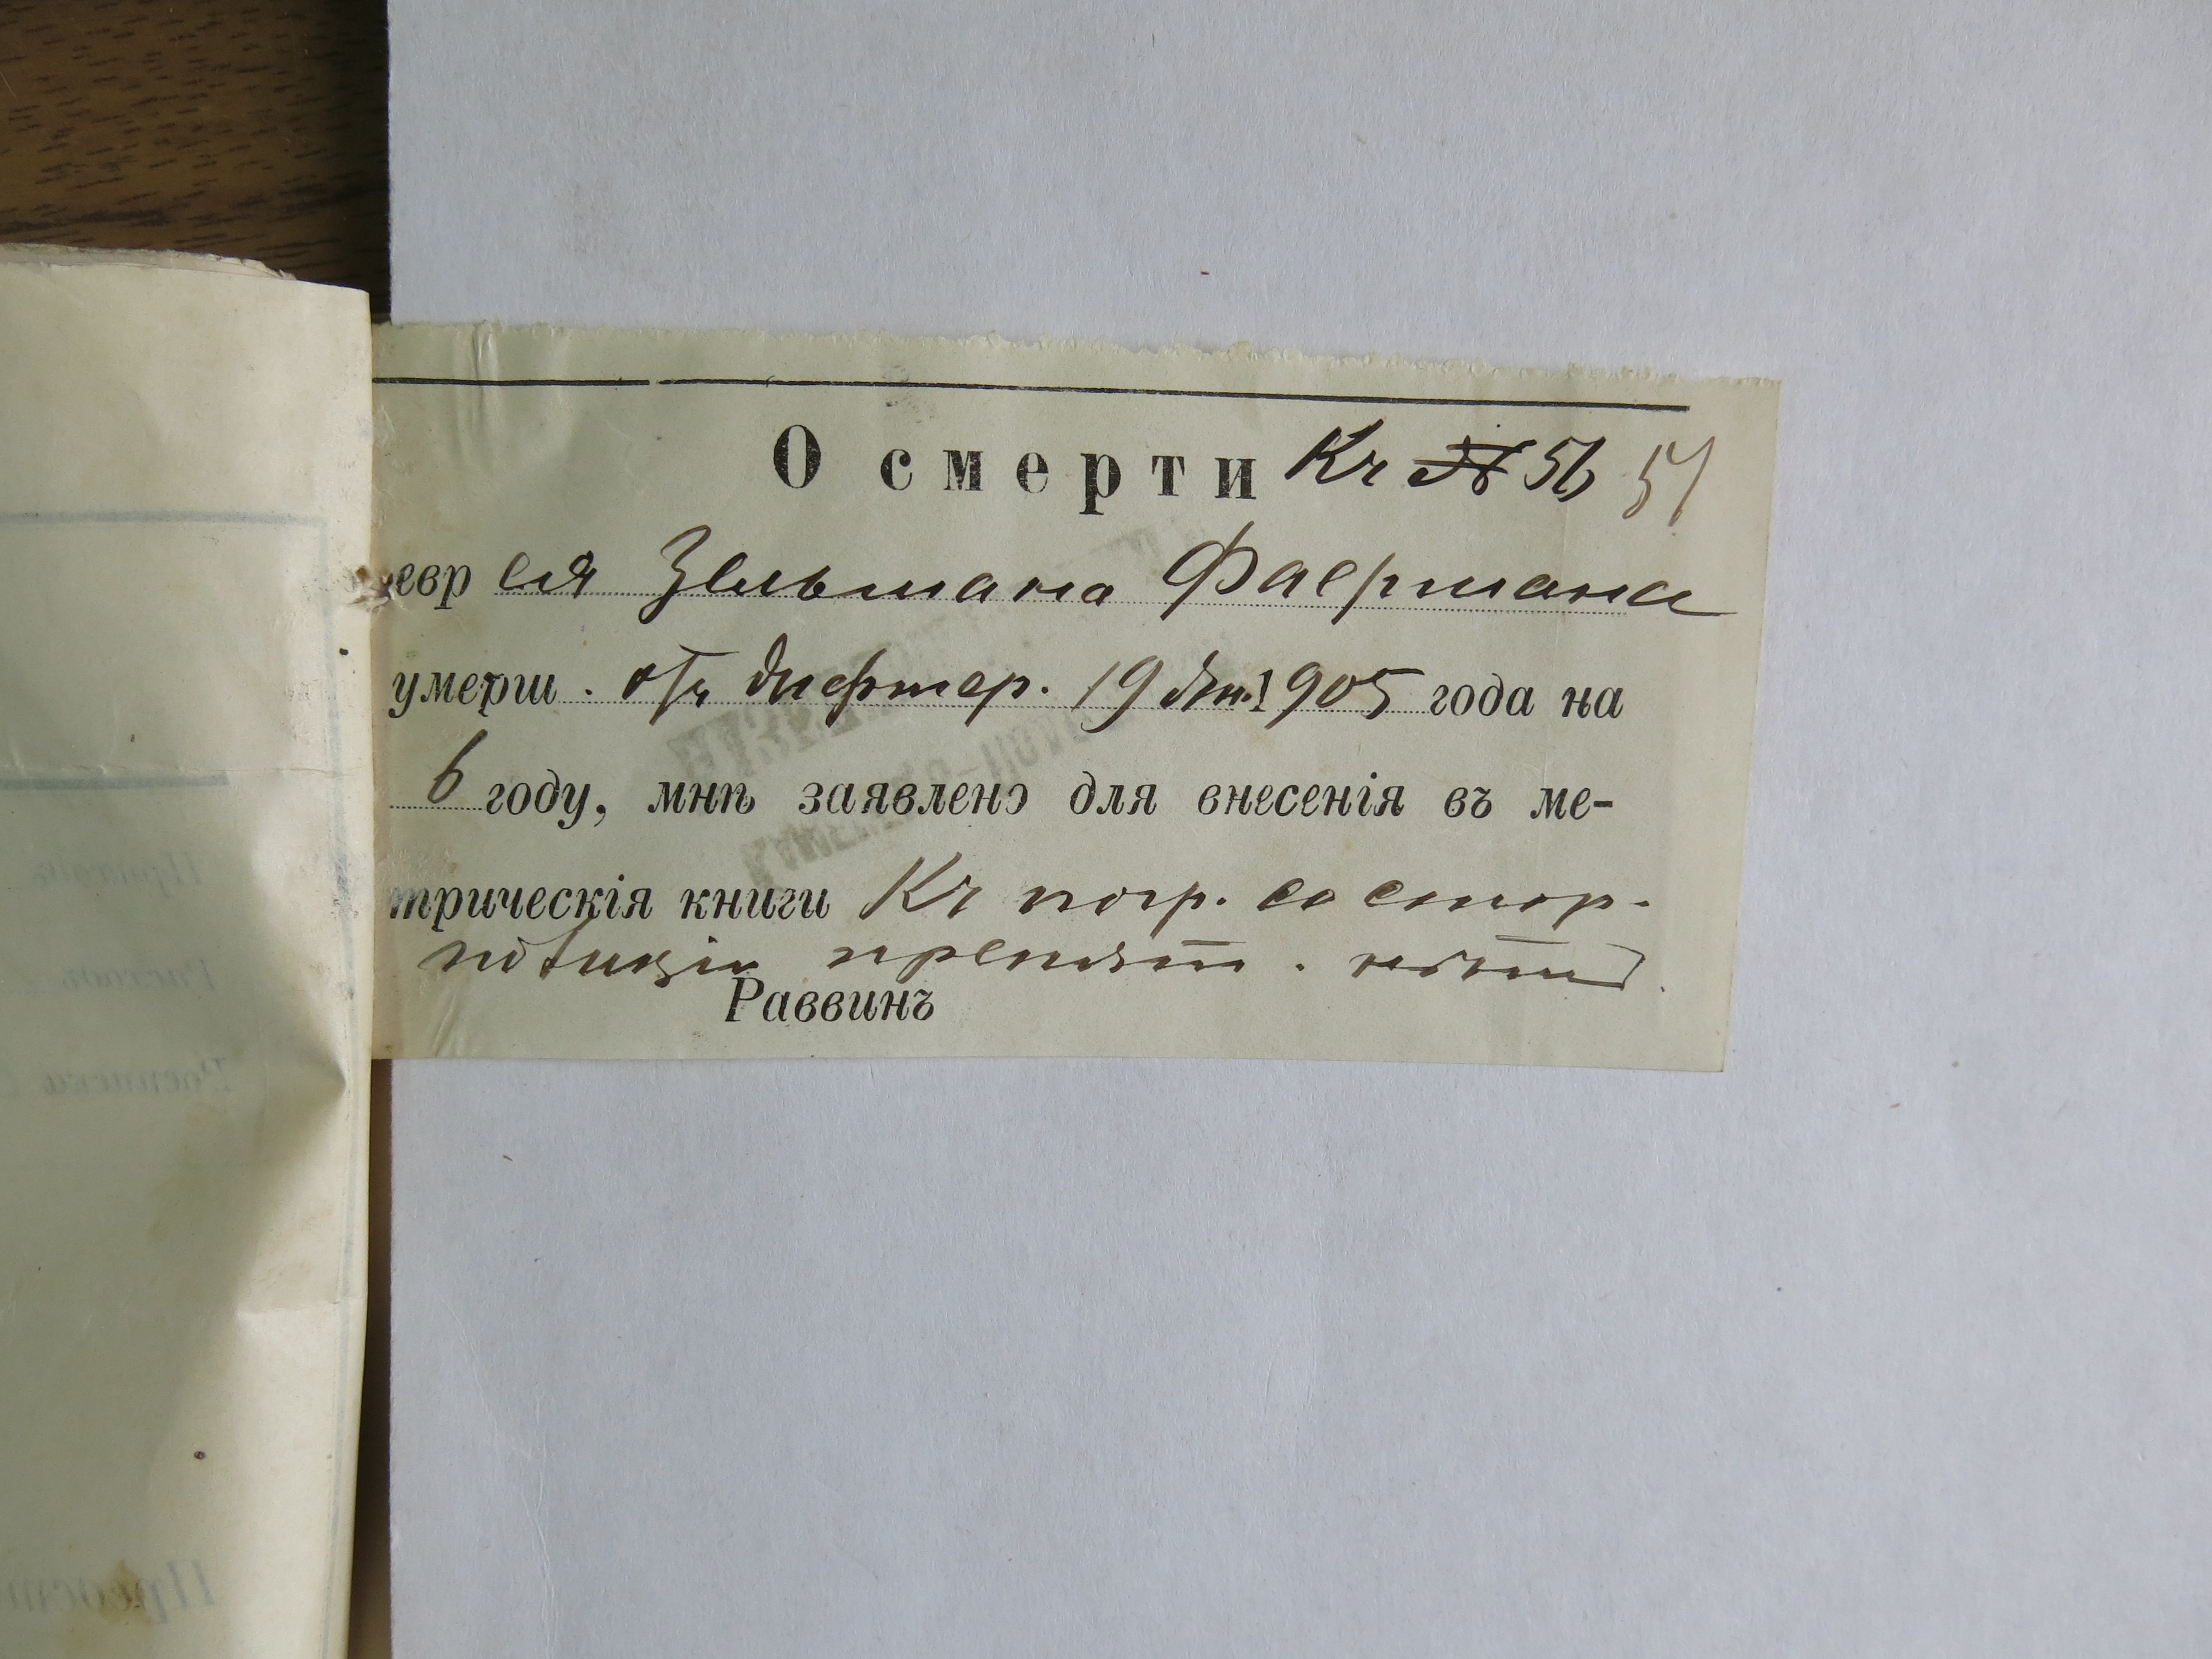 О смерти Къ № 56 51
евр ея Зельмана Фаермана
умерш . отъ дифтер. 19 Янв. 1905 года на
6 году, мнѣ заявлено для внесенія въ ме-
трическія книги Къ погр. со стор.
полиціи препят. нѣтъ
Раввинъ